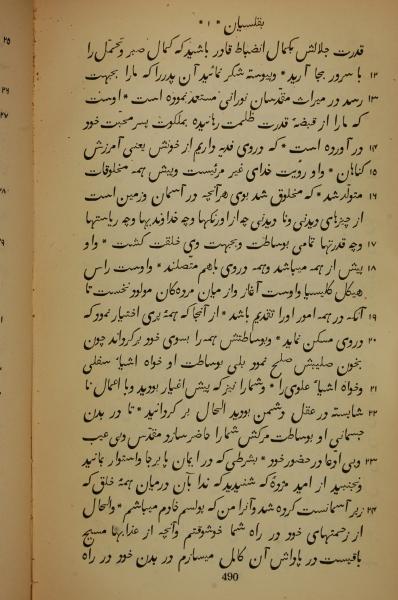 بقلسیان * ۱ *
قدرت جلالش بکمال انضباط قادر باشید که کمال صبر و تحمل را
۱۲ با سرور بجا آرید * و پیوسته شکر نمائید آن پدر را که مارا بجهت
۱۳ رسد در میراث مقدسان نورانی مستعد نموده است * اوست
که مارا از قبضهٔ قدرت ظلمت رهانیده بملکوت پسر محبت خود
۱۴ در آورده است * که در وی فدیه داریم از خونش یعنی آمرزش
۱۵ گناهان * و او رویت خدای غیر مرئیست و پیش همه مخلوقات
۱۶ متولد شد * که مخلوق شد بوی هر آنچه در آسمان و زمین است
از چیزهای دیدنی و نا دیدنی چه از اورنکها و چه خداوندیها و چه ریاستها
۱۷ و چه قدرتها تمامی بوساطت و بجهت وی خلقت گشت * و او
۱۸ پیش از همه میباشد و همه در وی باهم متصلند * و اوست راس
هیکل کلیسیا و اوست آغاز و از میان مردهکان مولود نخست تا
۱۹ آنکه در همه امور او را تقدیم باشد * از آنجا که همهٔ پری اختیار نمود که
۲۰ در وی مسکن نماید * و بوساطتش همه را بسوی خود بر کرداند چون
بخون صلیبش صلح نمود بلی بوساطت او خواه اشیاء سفلی
۲۱ و خواه اشیاء علوی را * و شمارا نیز که پیش اغیار بودید و با اعمال نا
۲۲ شایسته در عقل دشمن بودید الحال بر کردانید * تا در بدن
جسمانی او بوساطت مرکش شمارا حاضر سازد مقدس و بی عیب
۲۳ و بی ادعا در حضور خود * بشرطی که در ایمان پا برجا و استوار بمانید
و نجنبید از امید مژدهٔ که شنیدید که ندا بآن درمیان همهٔ خلق که
۲۴ زیر آسمانست کرده شد و آنرا من که پولسم خادم میباشم * و الحال
از زحمتهای خود در راه شما خوشوقتم و آنچه از عذابها مسیح
باقیست در پاداش آن کامل میسازم در بدن خود در راه
490
۲۵
۲۶
۲۷
۲۸
۲۹